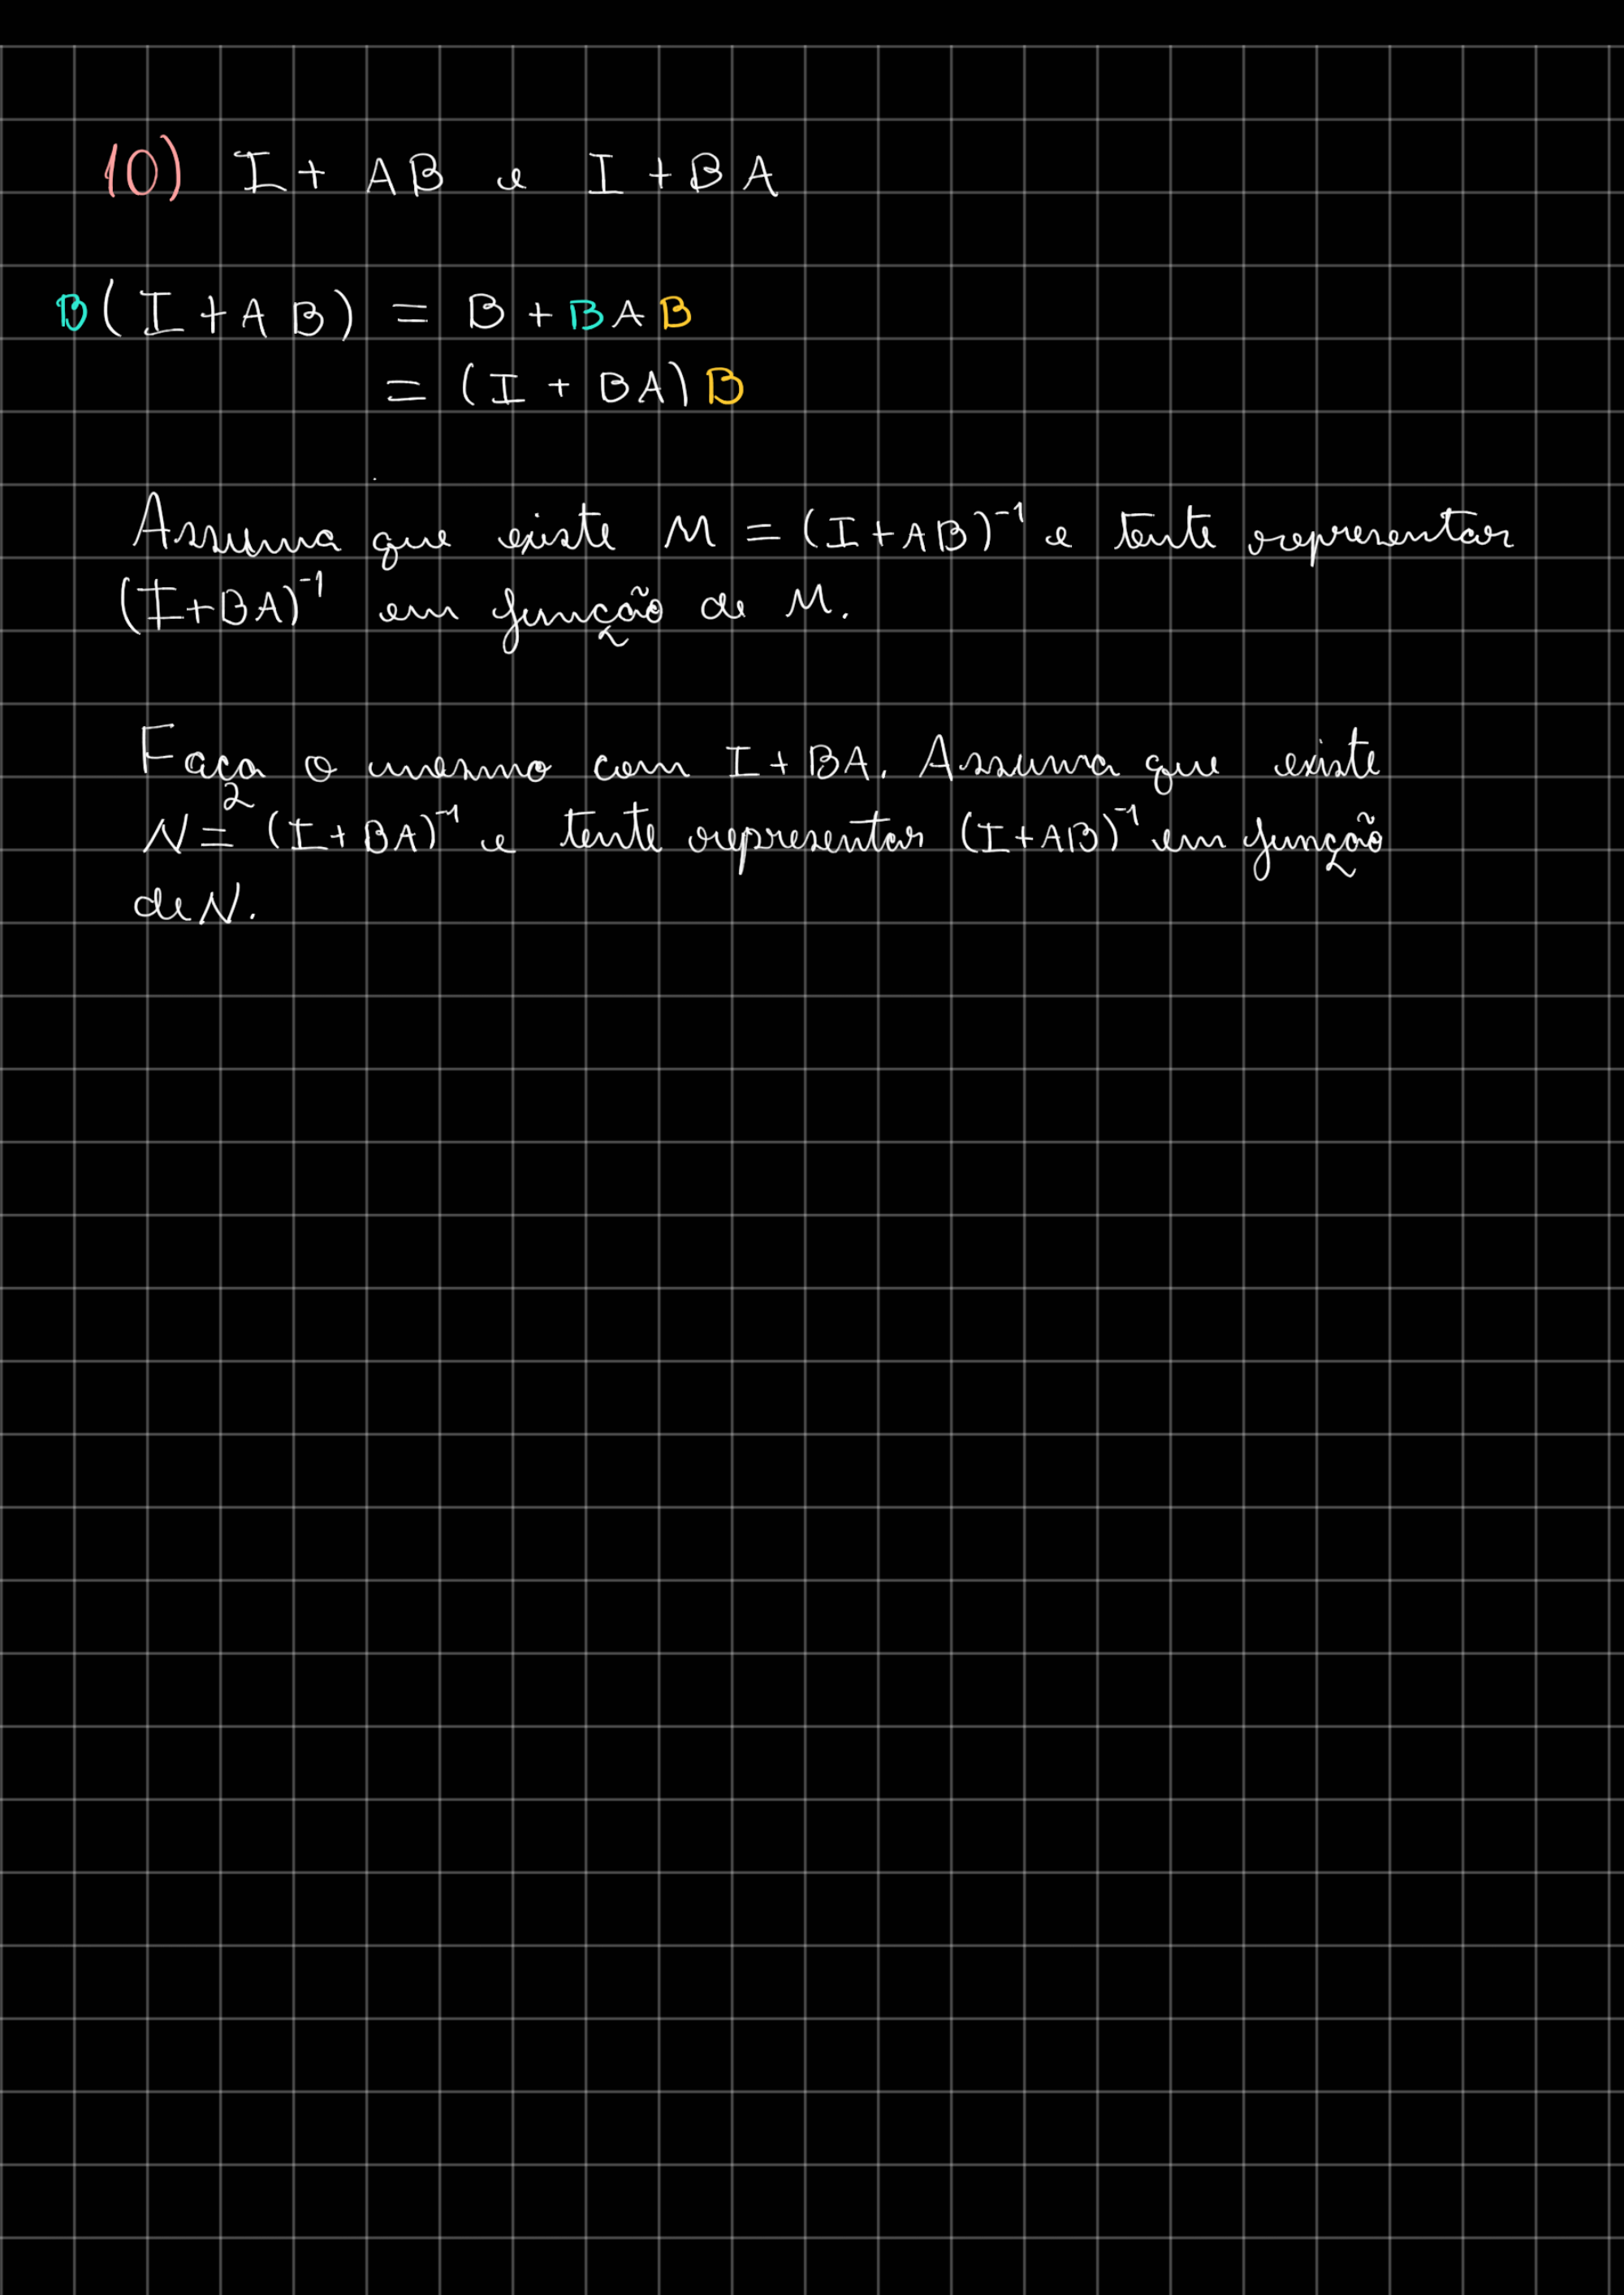 10) I + AB e I + BA
B(I + AB) = B + BAB
= (I + BA)B
Assuma que existe M = (I + AB)⁻¹ e tente representar
(I + BA)⁻¹ em função de M.
Faça o mesmo com I + BA. Assuma que existe
N = (I + BA)⁻¹ e tente representar (I + AB)⁻¹ em função
de N.